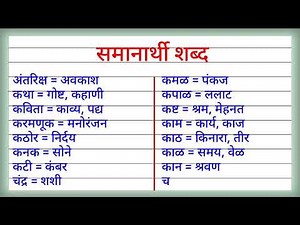 समानार्थी शब्द
अंतरिक्ष = अवकाश
कथा = गोष्ट, कहाणी
कविता = काव्य, पद्य
करमणूक = मनोरंजन
कठोर = निर्दय
कनक = सोने
कटी = कंबर
चंद्र = शशी
कमळ = पंकज
कपाळ = ललाट
कष्ट = श्रम, मेहनत
काम = कार्य, काज
काठ = किनारा, तीर
काळ = समय, वेळ
कान = श्रवण
च